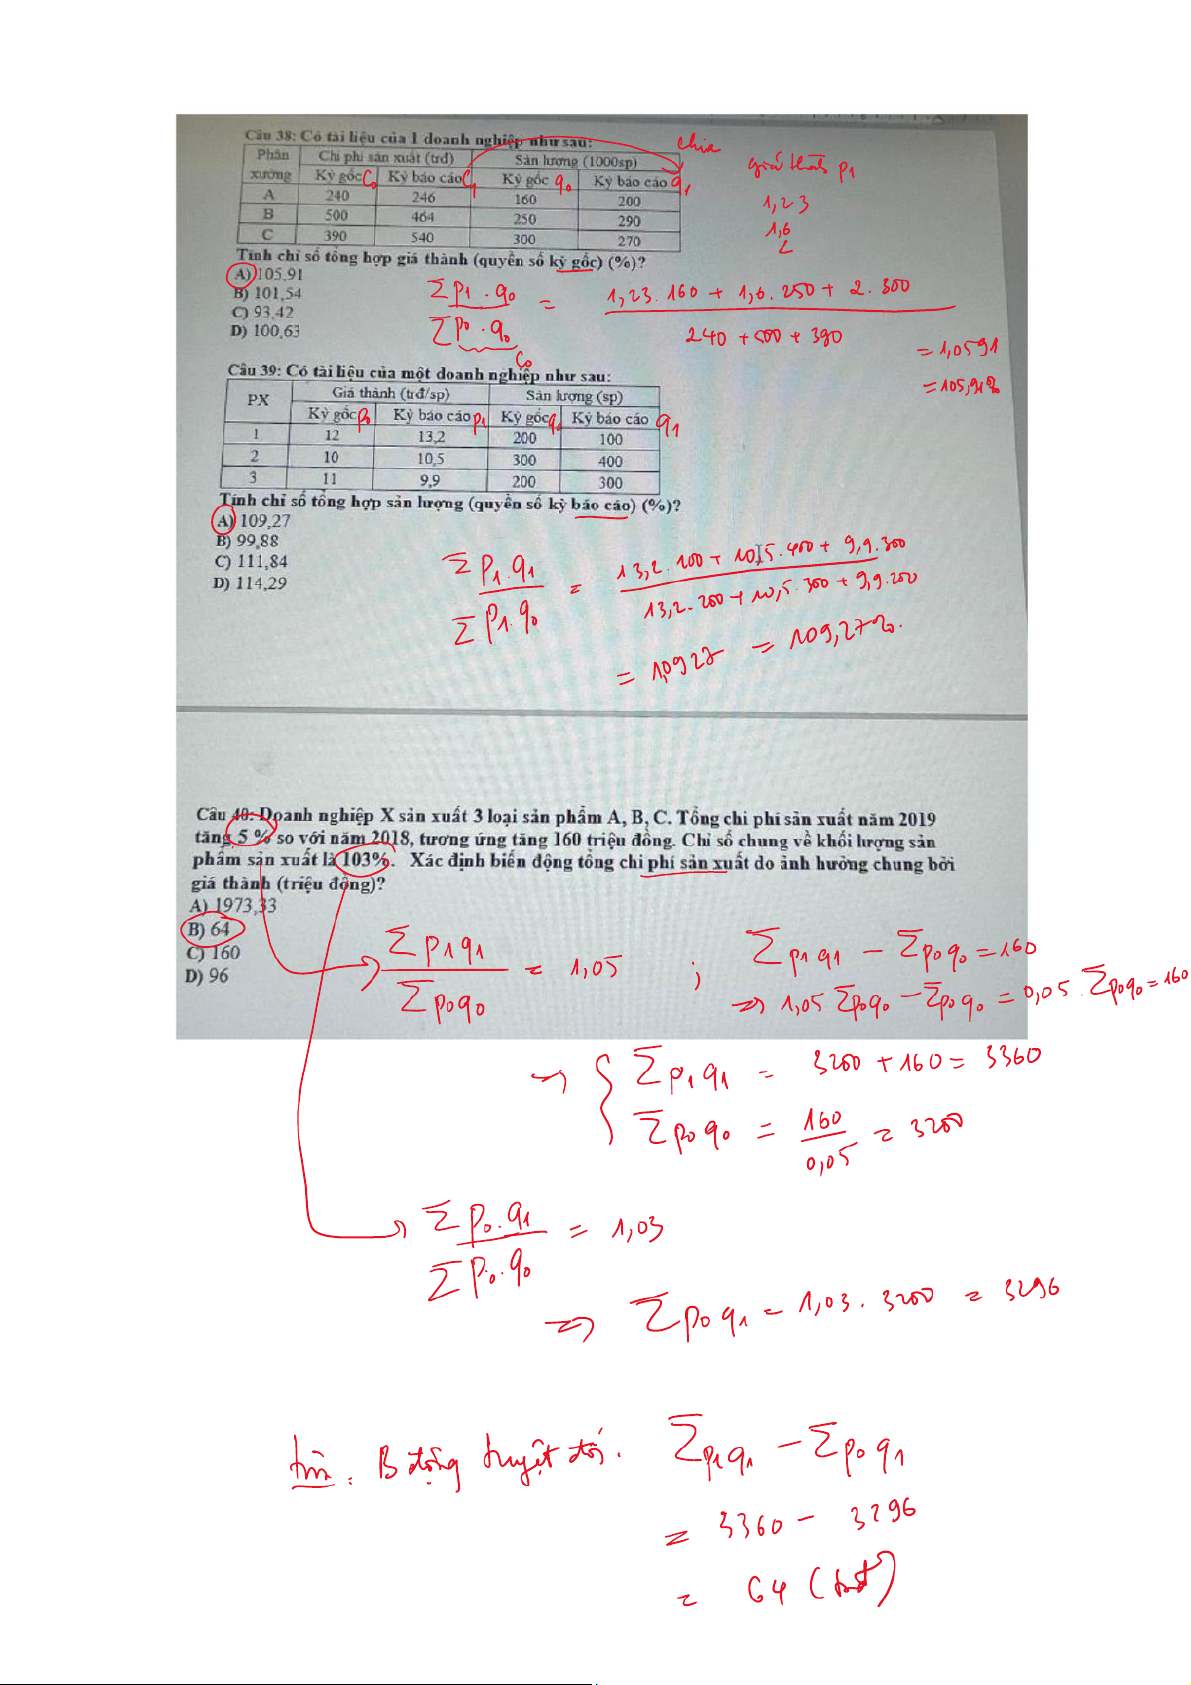 Câu 38: Có tài liệu của 1 doanh nghiệp như sau:
chia
Phân xưởng Chi phí sản xuất (trđ) Sản lượng (1000sp)
Kỳ gốc C₀ Kỳ báo cáo C₁ Kỳ gốc q₀ Kỳ báo cáo q₁
A 240 246 160 200
B 500 464 250 290
C 390 540 300 270
giá thành p₁
1,23
1,6
2
Tính chỉ số tổng hợp giá thành (quyền số kỳ gốc) (%)?
A) 105,91
B) 101,54
C) 93,42
D) 100,63
Σp₁.q₀ / Σp₀.q₀ = (1,23.160 + 1,6.250 + 2.300) / (240 + 500 + 390)
C₀
= 1,0591
= 105,91%
Câu 39: Có tài liệu của một doanh nghiệp như sau:
PX Giá thành (trđ/sp) Sản lượng (sp)
Kỳ gốc p₀ Kỳ báo cáo p₁ Kỳ gốc q₀ Kỳ báo cáo q₁
1 12 13,2 200 100
2 10 10,5 300 400
3 11 9,9 200 300
Tính chỉ số tổng hợp sản lượng (quyền số kỳ báo cáo) (%)?
A) 109,27
B) 99,88
C) 111,84
D) 114,29
Σp₁.q₁ / Σp₁.q₀ = (13,2.100 + 10,5.400 + 9,9.300) / (13,2.200 + 10,5.300 + 9,9.200)
= 1,0927 = 109,27%.
Câu 40: Doanh nghiệp X sản xuất 3 loại sản phẩm A, B, C. Tổng chi phí sản xuất năm 2019
tăng 5 % so với năm 2018, tương ứng tăng 160 triệu đồng. Chỉ số chung về khối lượng sản
phẩm sản xuất là 103%. Xác định biến động tổng chi phí sản xuất do ảnh hưởng chung bởi
giá thành (triệu đồng)?
A) 1973,33
B) 64
C) 160
D) 96
Σp₁q₁ / Σp₀q₀ = 1,05 ; Σp₁q₁ − Σp₀q₀ = 160
⇒ 1,05 Σp₀q₀ − Σp₀q₀ = 0,05 . Σp₀q₀ = 160
→ { Σp₁q₁ = 3200 + 160 = 3360
Σp₀q₀ = 160 / 0,05 = 3200
Σp₀.q₁ / Σp₀.q₀ = 1,03
⇒ Σp₀q₁ = 1,03 . 3200 = 3296
tìm: B động tuyệt đối. Σp₁q₁ − Σp₀q₁
= 3360 − 3296
= 64 (trđ)